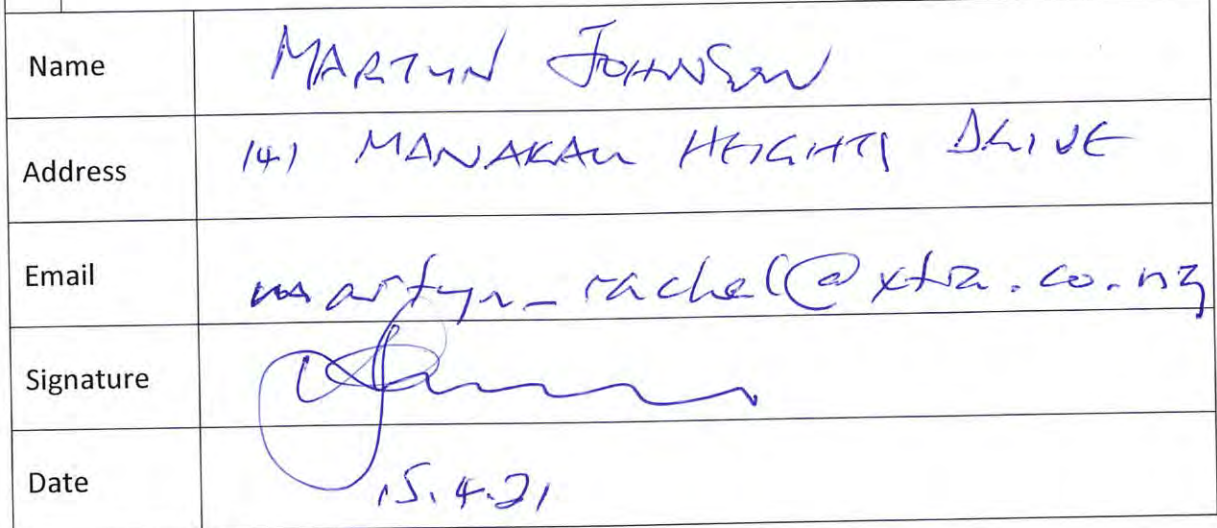 Name MARTYN JOHNSON
Address 141 MANAKAU HEIGHTS DRIVE
Email martyn_rachel@xtra.co.nz
Signature
Date 15.4.21